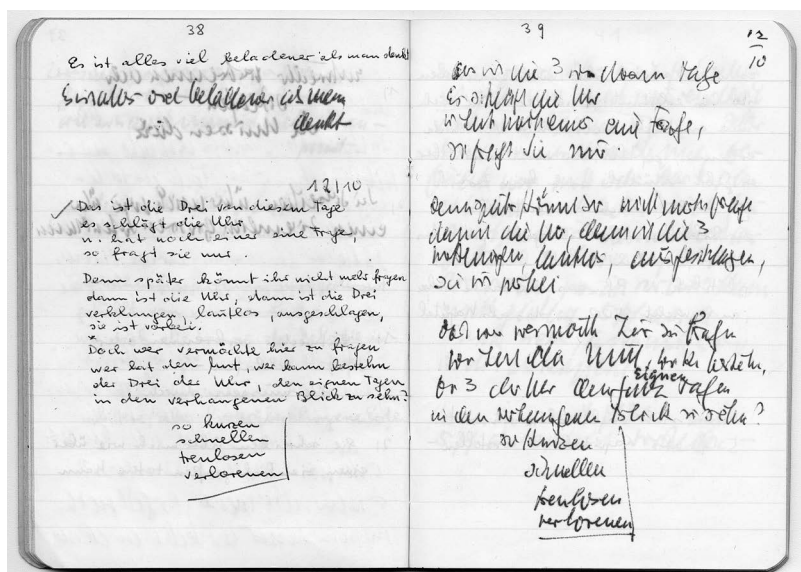 38
Es ist alles viel beladener als man denkt
Es ist alles viel beladener als man
denkt
12/10
Das ist die Drei von diesem Tage
es schlägt die Uhr
u. hat noch einer eine Frage,
so fragt sie nur.
Denn später könnt ihr nicht mehr fragen
dann ist die Uhr, dann ist die Drei
verklungen, lautlos, ausgeschlagen,
sie ist vorbei.
Doch wer vermöchte hier zu fragen
wer hat den Mut, wer kann bestehn
der Drei der Uhr, den eignen Tagen
in den verhangenen Blick zu sehn?
so kurzen
schnellen
treulosen
verlorenen
39
12/10
die 3 von diesem Tage
Es schlägt die Uhr
u hat noch einer eine Frage,
so fragt sie nur.
Denn später könnt ihr nicht mehr fragen
dann ist die Uhr, dann ist die 3
verklungen, lautlos, ausgeschlagen,
sie ist vorbei
doch wer vermöcht hier zu fragen
wer hat den Mut, wer kann bestehn,
der 3 der Uhr den eignen Tagen
in den verhangenen Blick zu sehn?
so kurzen
schnellen
treulosen
verlorenen